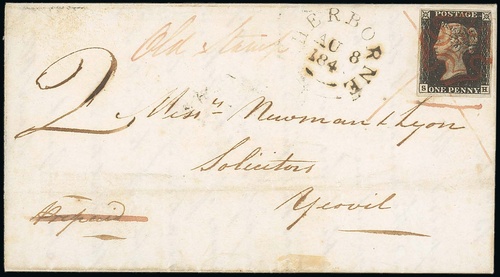 Old Stamp
SHERBORNE
AU 8
184
POSTAGE
S H
ONE PENNY
2
Mess.rs Newman & Lyon
Solicitors
Yeovil
Prepaid